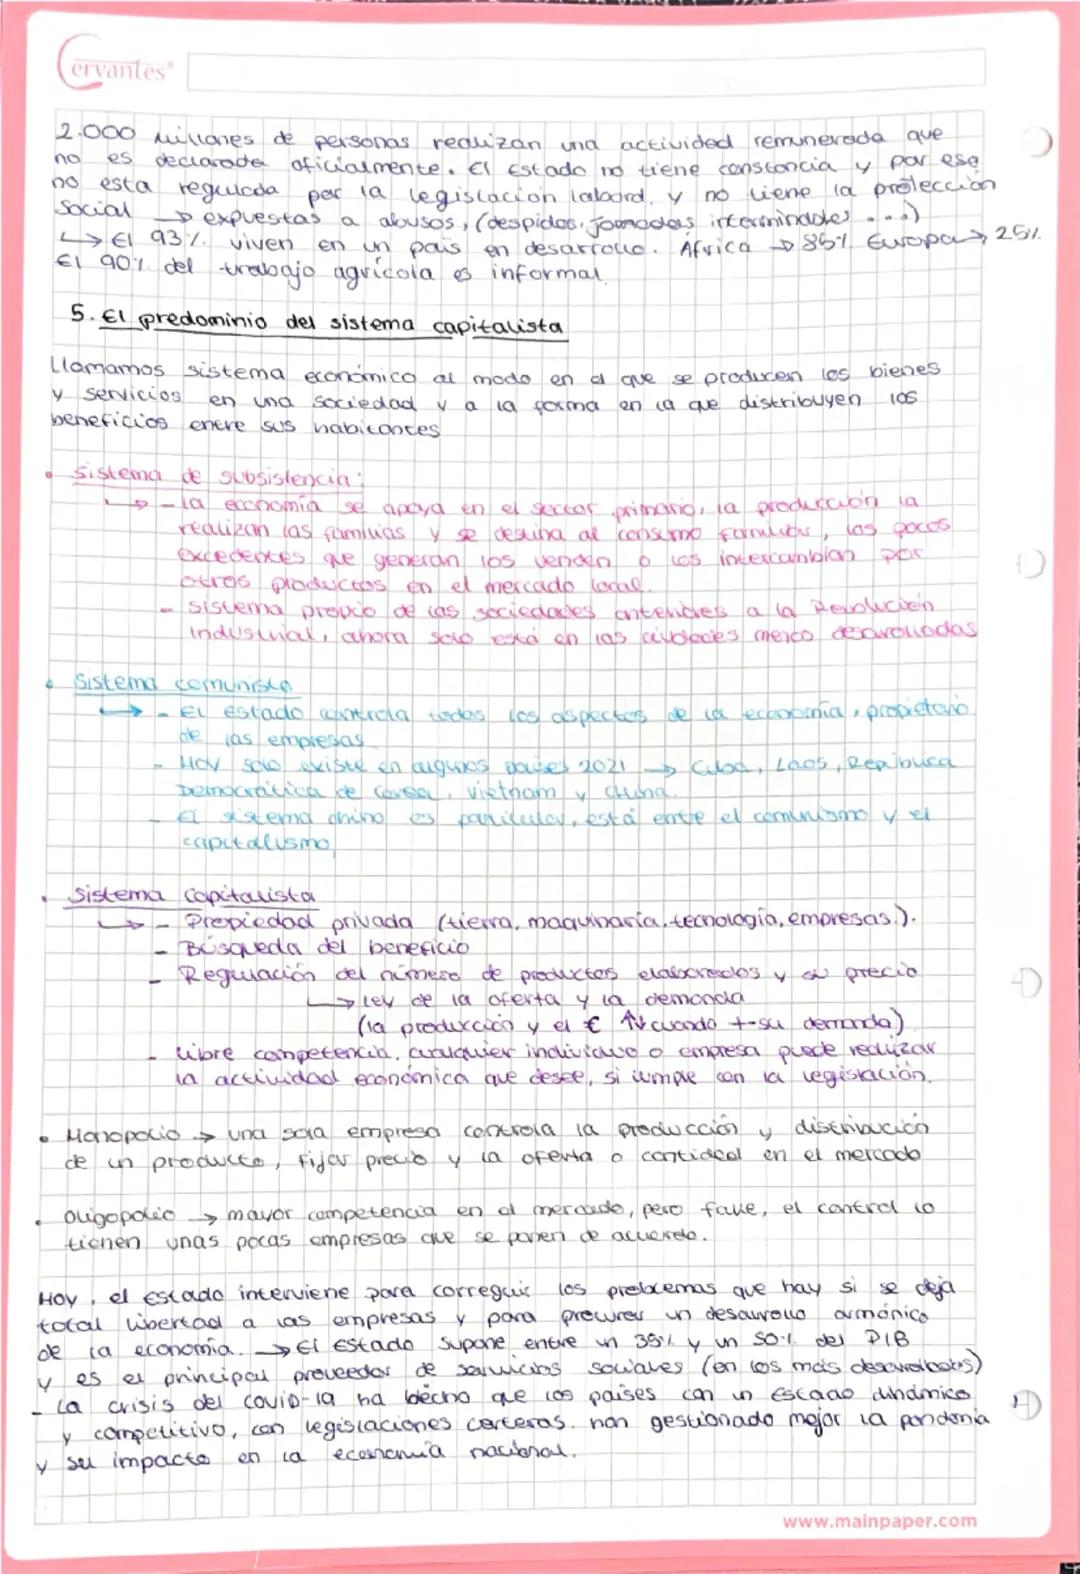 Cervantes®
2.000 millones de personas realizan una actividad remunerada que
no es declarada oficialmente. El Estado no tiene constancia y por ese
no esta regulada por la legislación laboral, y no tiene la protección
Social → expuestas a abusos, (despidos, jornadas interminables ...)
↳ El 93% viven en un país en desarrollo. Africa → 85% Europa → 25%
El 90% del trabajo agrícola es informal.
5. El predominio del sistema capitalista
Llamamos sistema económico al modo en el que se producen los bienes
y servicios en una sociedad y a la forma en la que distribuyen los
beneficios entre sus habitantes
• Sistema de subsistencia:
↳ - La economía se apoya en el sector primario, la producción la
realizan las familias y se destina al consumo familiar, las pocos
excedentes que generan los venden o los intercambian por
otros productos en el mercado local.
- Sistema propio de las sociedades anteriores a la Revolución
Industrial, ahora solo está en las menco desarrolladas
• Sistema comunista
↳ - El estado controla todos los aspectos de la economía, propietario
de las empresas
- Hoy solo existe en algunos países 2021 → Cuba, Laos, República
Democrática de Corea, Vietnam y China.
- El sistema chino es particular, está entre el comunismo y el
capitalismo
• Sistema capitalista
↳ - Propiedad privada (tierra, maquinaria, tecnología, empresas.).
- Búsqueda del beneficio
- Regulación del número de productos elaborados y su precio
↳ Ley de la oferta y la demanda
(la producción y el € ↑↓ cuando +-su demanda)
- Libre competencia, cualquier individuo o empresa puede realizar
la actividad económica que desee, si cumple con la legislación.
• Monopolio → una sola empresa controla la producción y distribución
de un producto, fijar precio y la oferta o cantidad en el mercado
• Oligopolio → mayor competencia en el mercado, pero falle, el control lo
tienen unas pocas empresas que se ponen de acuerdo.
Hoy, el estado interviene para correguir los problemas que hay si se deja
total libertad a las empresas y para procurer un desarrollo armónico
de la economía. → El Estado supone entre un 35% y un 50% del PIB
y es el principal proveedor de servicios sociales (en los más desarrollados)
- La crisis del covid-19 ha hecho que los países con un Estado dinámico
y competitivo, con legislaciones certeras, han gestionado mejor la pandemia
y su impacto en la economía nacional.
www.mainpaper.com